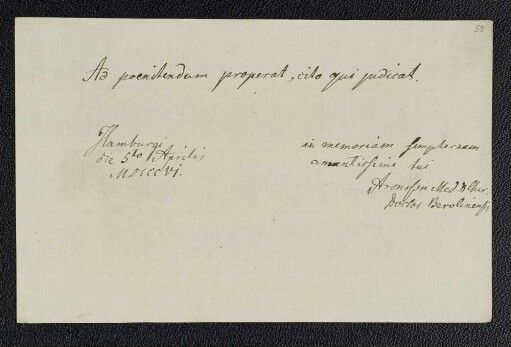 53
Ad poenitendum properat, cito qui judicat.
Hamburgi
die 5to Aprilis
MDCCCVI.
in memoriam sempiternam
amantissimi tui
Aronsson Med & Chir.
Doctor Berolinensis